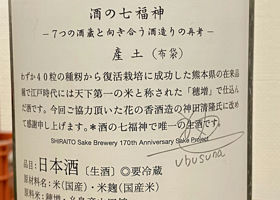 酒の七福神
－7つの酒蔵と向き合う酒造りの再考－
産土(布袋)
わずか40粒の種籾から復活栽培に成功した熊本県の在来品
種で江戸時代には天下第一の米と称された「穂増」で仕込ん
だ酒です。今回ご協力頂いた花の香酒造の神田清隆氏に改め
て感謝申し上げます。＊酒の七福神で唯一の生酒です。
SHIRAITO Sake Brewery 170th Anniversary Sake Project
ubusuna
品目:日本酒[生酒]◎要冷蔵
原材料名:米(国産)・米麹(国産米)